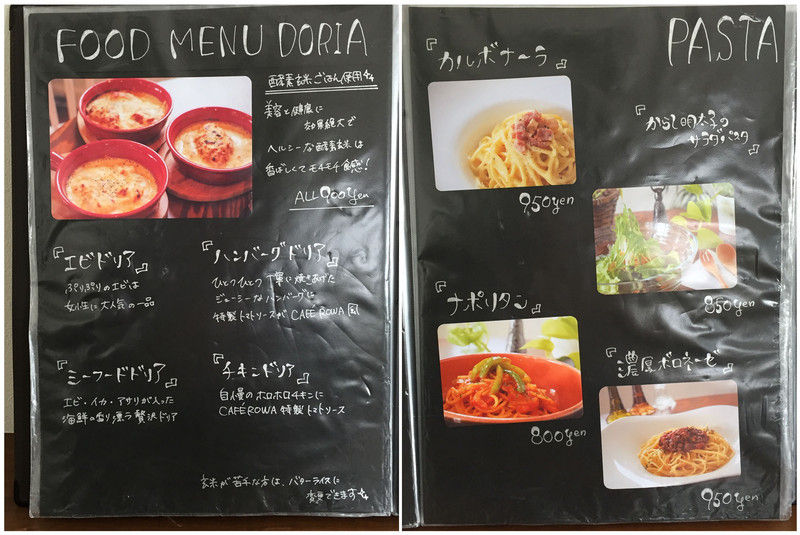 FOOD MENU DORIA
酵素玄米ごはん使用
美容と健康に
効果絶大で
ヘルシーな酵素玄米は
香ばしくてモチモチ食感！
ALL 900yen
『エビドリア』
ぷりぷりのエビは
女性に大人気の一品
『ハンバーグドリア』
ひとつひとつ丁寧に焼きあげた
ジューシーなハンバーグに
特製トマトソースが CAFE ROWA 風
『シーフードドリア』
エビ・イカ・アサリが入った
海鮮の香り漂う贅沢ドリア
『チキンドリア』
自慢のホロホロチキンに
CAFEROWA 特製トマトソース
玄米が苦手な方は、バターライスに
変更できます
PASTA
『カルボナーラ』
950yen
『からし明太子の
サラダパスタ』
850yen
『ナポリタン』
800yen
『濃厚ボロネーゼ』
950yen